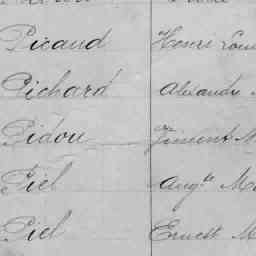 Picaud Henri Loui
Pichard Alexandre
Pidou
Piel Aug.te M
Piel Ernest M